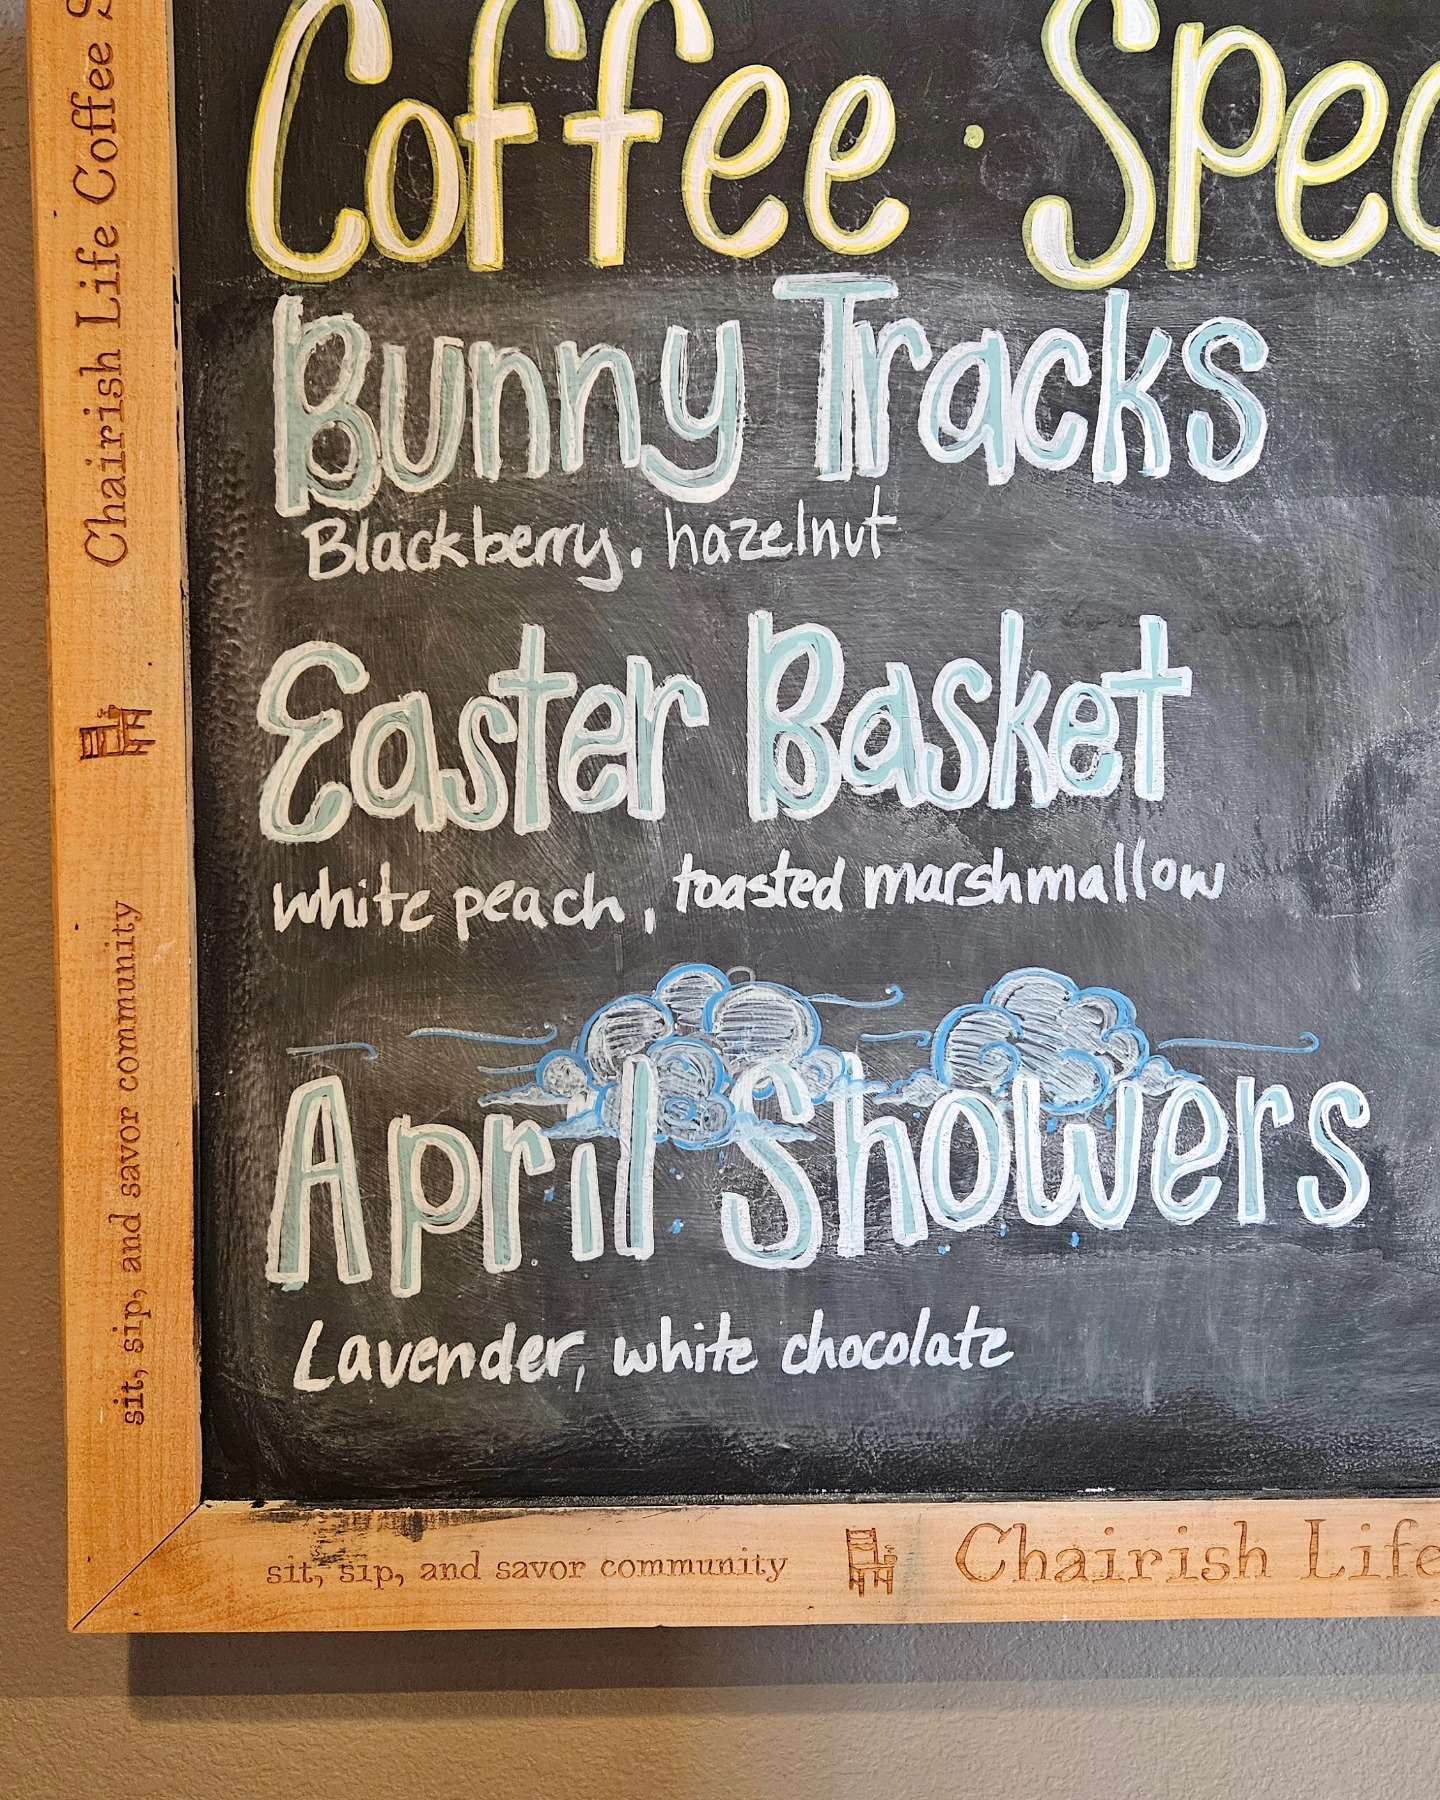 Coffee · Spec
Bunny Tracks
Blackberry, hazelnut
Easter Basket
white peach, toasted marshmallow
April Showers
Lavender, white chocolate
sit, sip, and savor community
Chairish Life Coffee S
sit, sip, and savor community
Chairish Life